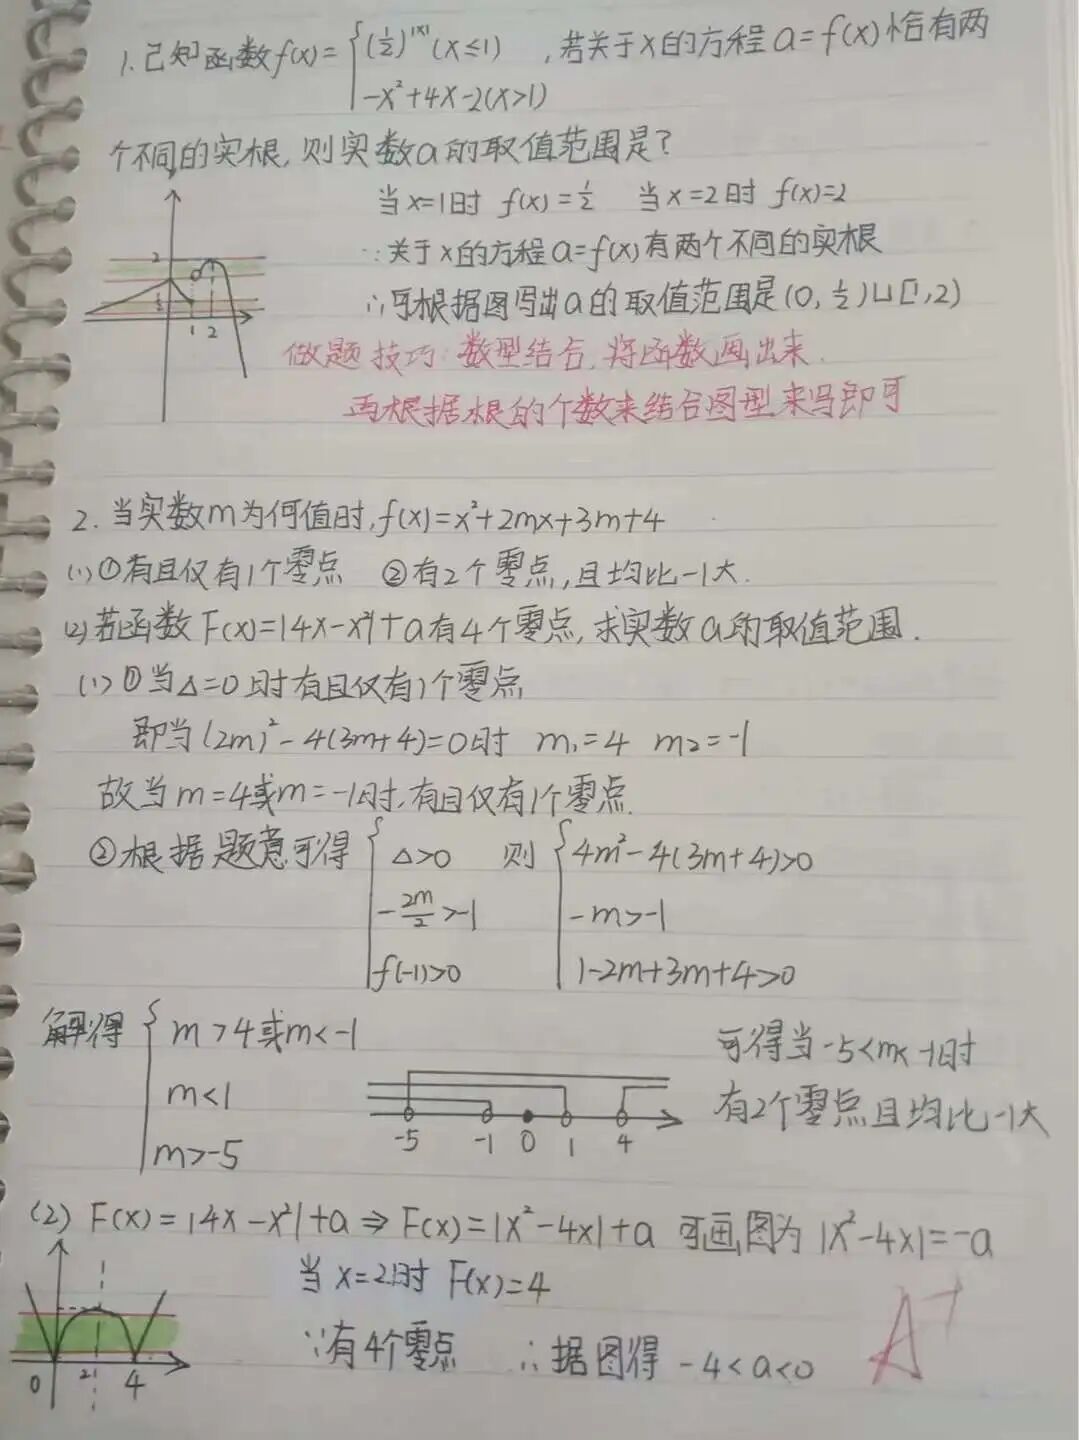 1. 已知函数f(x)={(½)^|x| (x≤1) ,若关于x的方程a=f(x)恰有两
-x²+4x-2(x>1)
个不同的实根,则实数a的取值范围是?
当x=1时 f(x)=½ 当x=2时 f(x)=2
∵关于x的方程a=f(x)有两个不同的实根
∴可根据图写出a的取值范围是(0,½)∪[1,2)
2
½
1 2
做题技巧:数型结合,将函数画出来.
再根据根的个数来结合图型来写即可
2. 当实数m为何值时,f(x)=x²+2mx+3m+4
(1)①有且仅有1个零点 ②有2个零点,且均比-1大.
(2)若函数F(x)=|4x-x²|+a有4个零点,求实数a的取值范围.
(1)①当△=0时有且仅有1个零点
即当(2m)²-4(3m+4)=0时 m₁=4 m₂=-1
故当m=4或m=-1时,有且仅有1个零点.
②根据题意可得{△>0 则{4m²-4(3m+4)>0
-2m/2>-1 -m>-1
f(-1)>0 1-2m+3m+4>0
解得{m>4或m<-1
m<1
m>-5
-5 -1 0 1 4
可得当-5<m<-1时
有2个零点且均比-1大
(2) F(x)=|4x-x²|+a⇒F(x)=|x²-4x|+a 可画图为|x²-4x|=-a
当x=2时 F(x)=4
∵有4个零点 ∴据图得 -4<a<0
0 2 4
A+